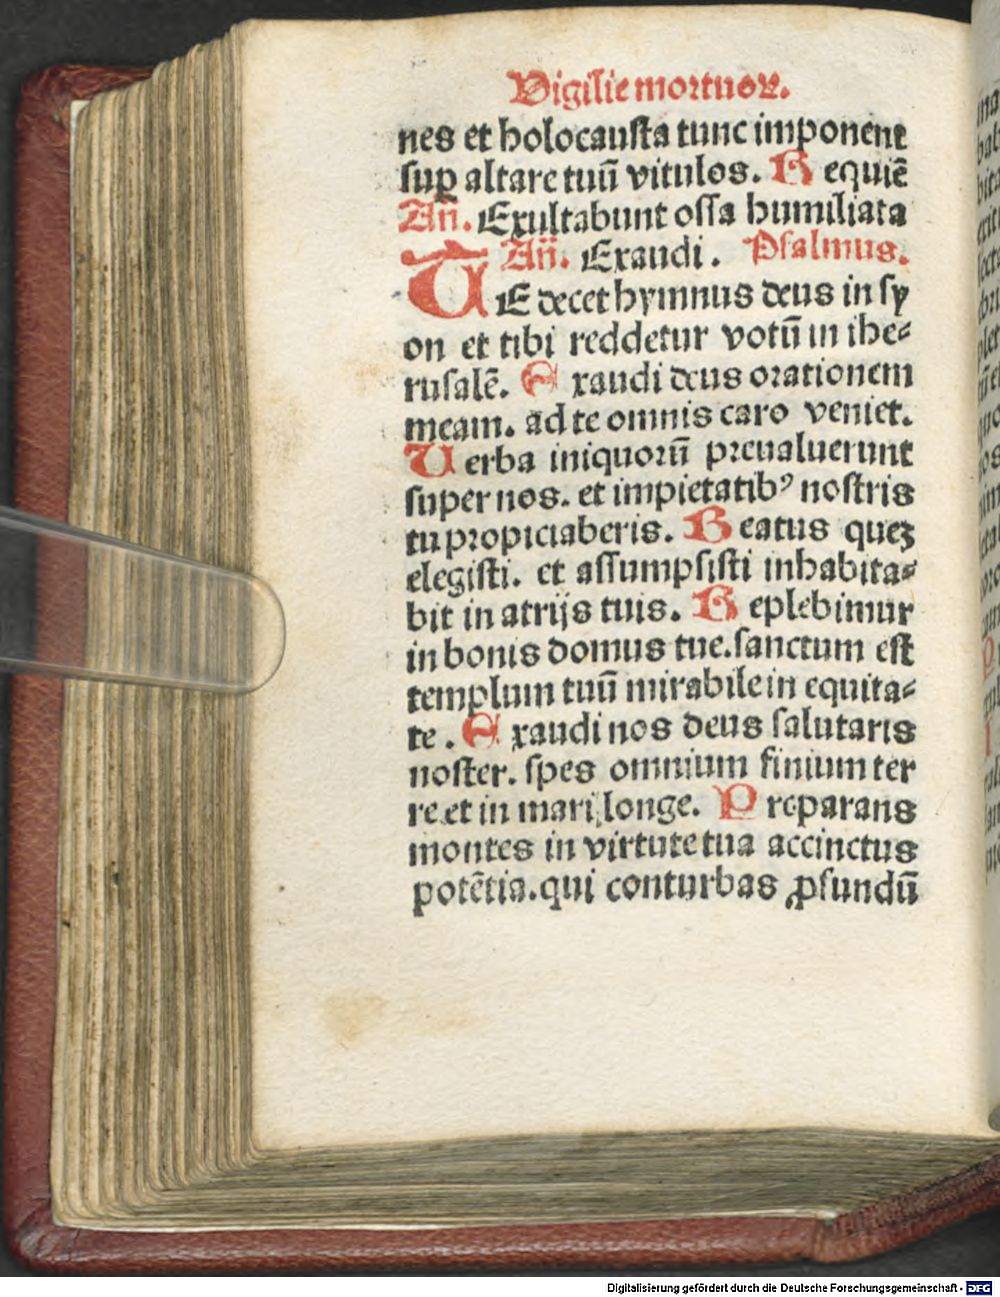 Vigilie mortuoꝝ.
nes et holocausta tunc imponent
suꝑ altare tuū vitulos. Requiē
Añ. Exultabunt ossa humiliata
Añ. Exaudi. Psalmus.
TE decet hymnus deus in sy
on et tibi reddetur votū in ihe⸗
rusalē. Exaudi deus orationem
meam. ad te omnis caro veniet.
Verba iniquorū preualuerunt
super nos. et impietatibꝰ nostris
tu propiciaberis. Beatus queꝫ
elegisti. et assumpsisti inhabita⸗
bit in atrijs tuis. Replebimur
in bonis domus tue. sanctum est
templum tuū mirabile in equita⸗
te. Exaudi nos deus salutaris
noster. spes omnium finium ter
re et in mari longe. Preparans
montes in virtute tua accinctus
potētia. qui conturbas ꝓfundū
Digitalisierung gefördert durch die Deutsche Forschungsgemeinschaft - DFG